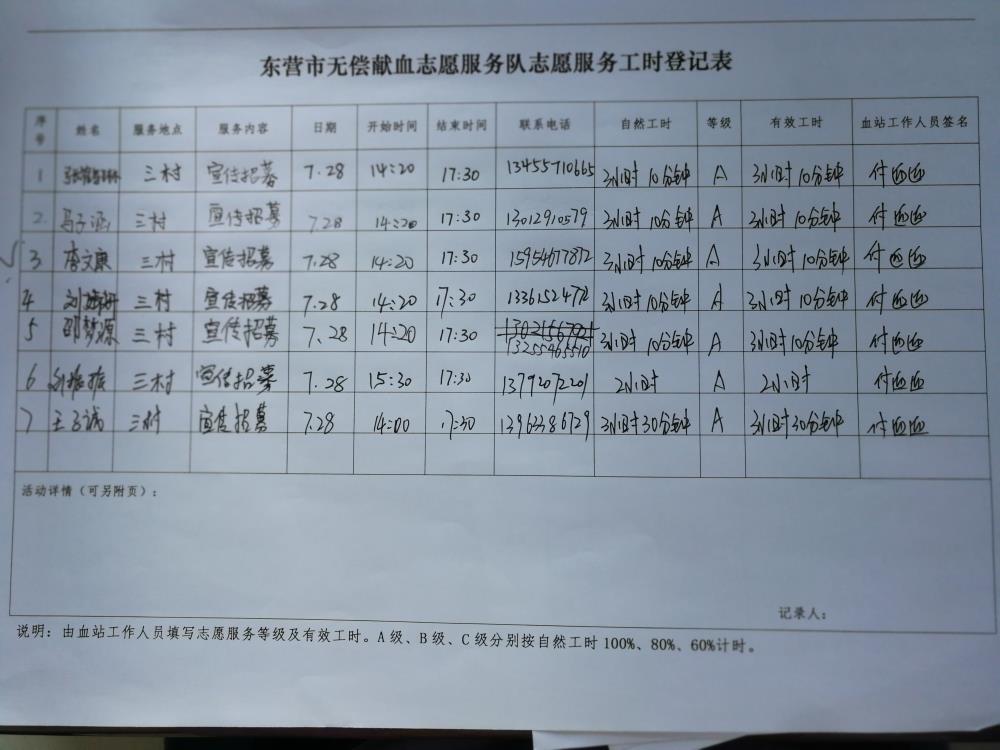 东营市无偿献血志愿服务队志愿服务工时登记表
序号 姓名 服务地点 服务内容 日期 开始时间 结束时间 联系电话 自然工时 等级 有效工时 血站工作人员签名
1 三村 宣传招募 7.28 14:20 17:30 13455710665 3小时10分钟 A 3小时10分钟
2. 马子涵 三村 宣传招募 7.28 14:20 17:30 13012910579 3小时10分钟 A 3小时10分钟
3 李文康 三村 宣传招募 7.28 14:20 17:30 15954677872 3小时10分钟 A 3小时10分钟
4 三村 宣传招募 7.28 14:20 17:30 3小时10分钟 A 3小时10分钟
5 邵梦源 三村 宣传招募 7.28 14:20 17:30 13255465510 3小时10分钟 A 3小时10分钟
6 三村 宣传招募 7.28 15:30 17:30 13792072201 2小时 A 2小时
7 王子诚 三村 宣传招募 7.28 14:00 17:30 13963386729 3小时30分钟 A 3小时30分钟
活动详情（可另附页）：
记录人：
说明：由血站工作人员填写志愿服务等级及有效工时。A级、B级、C级分别按自然工时100%、80%、60%计时。